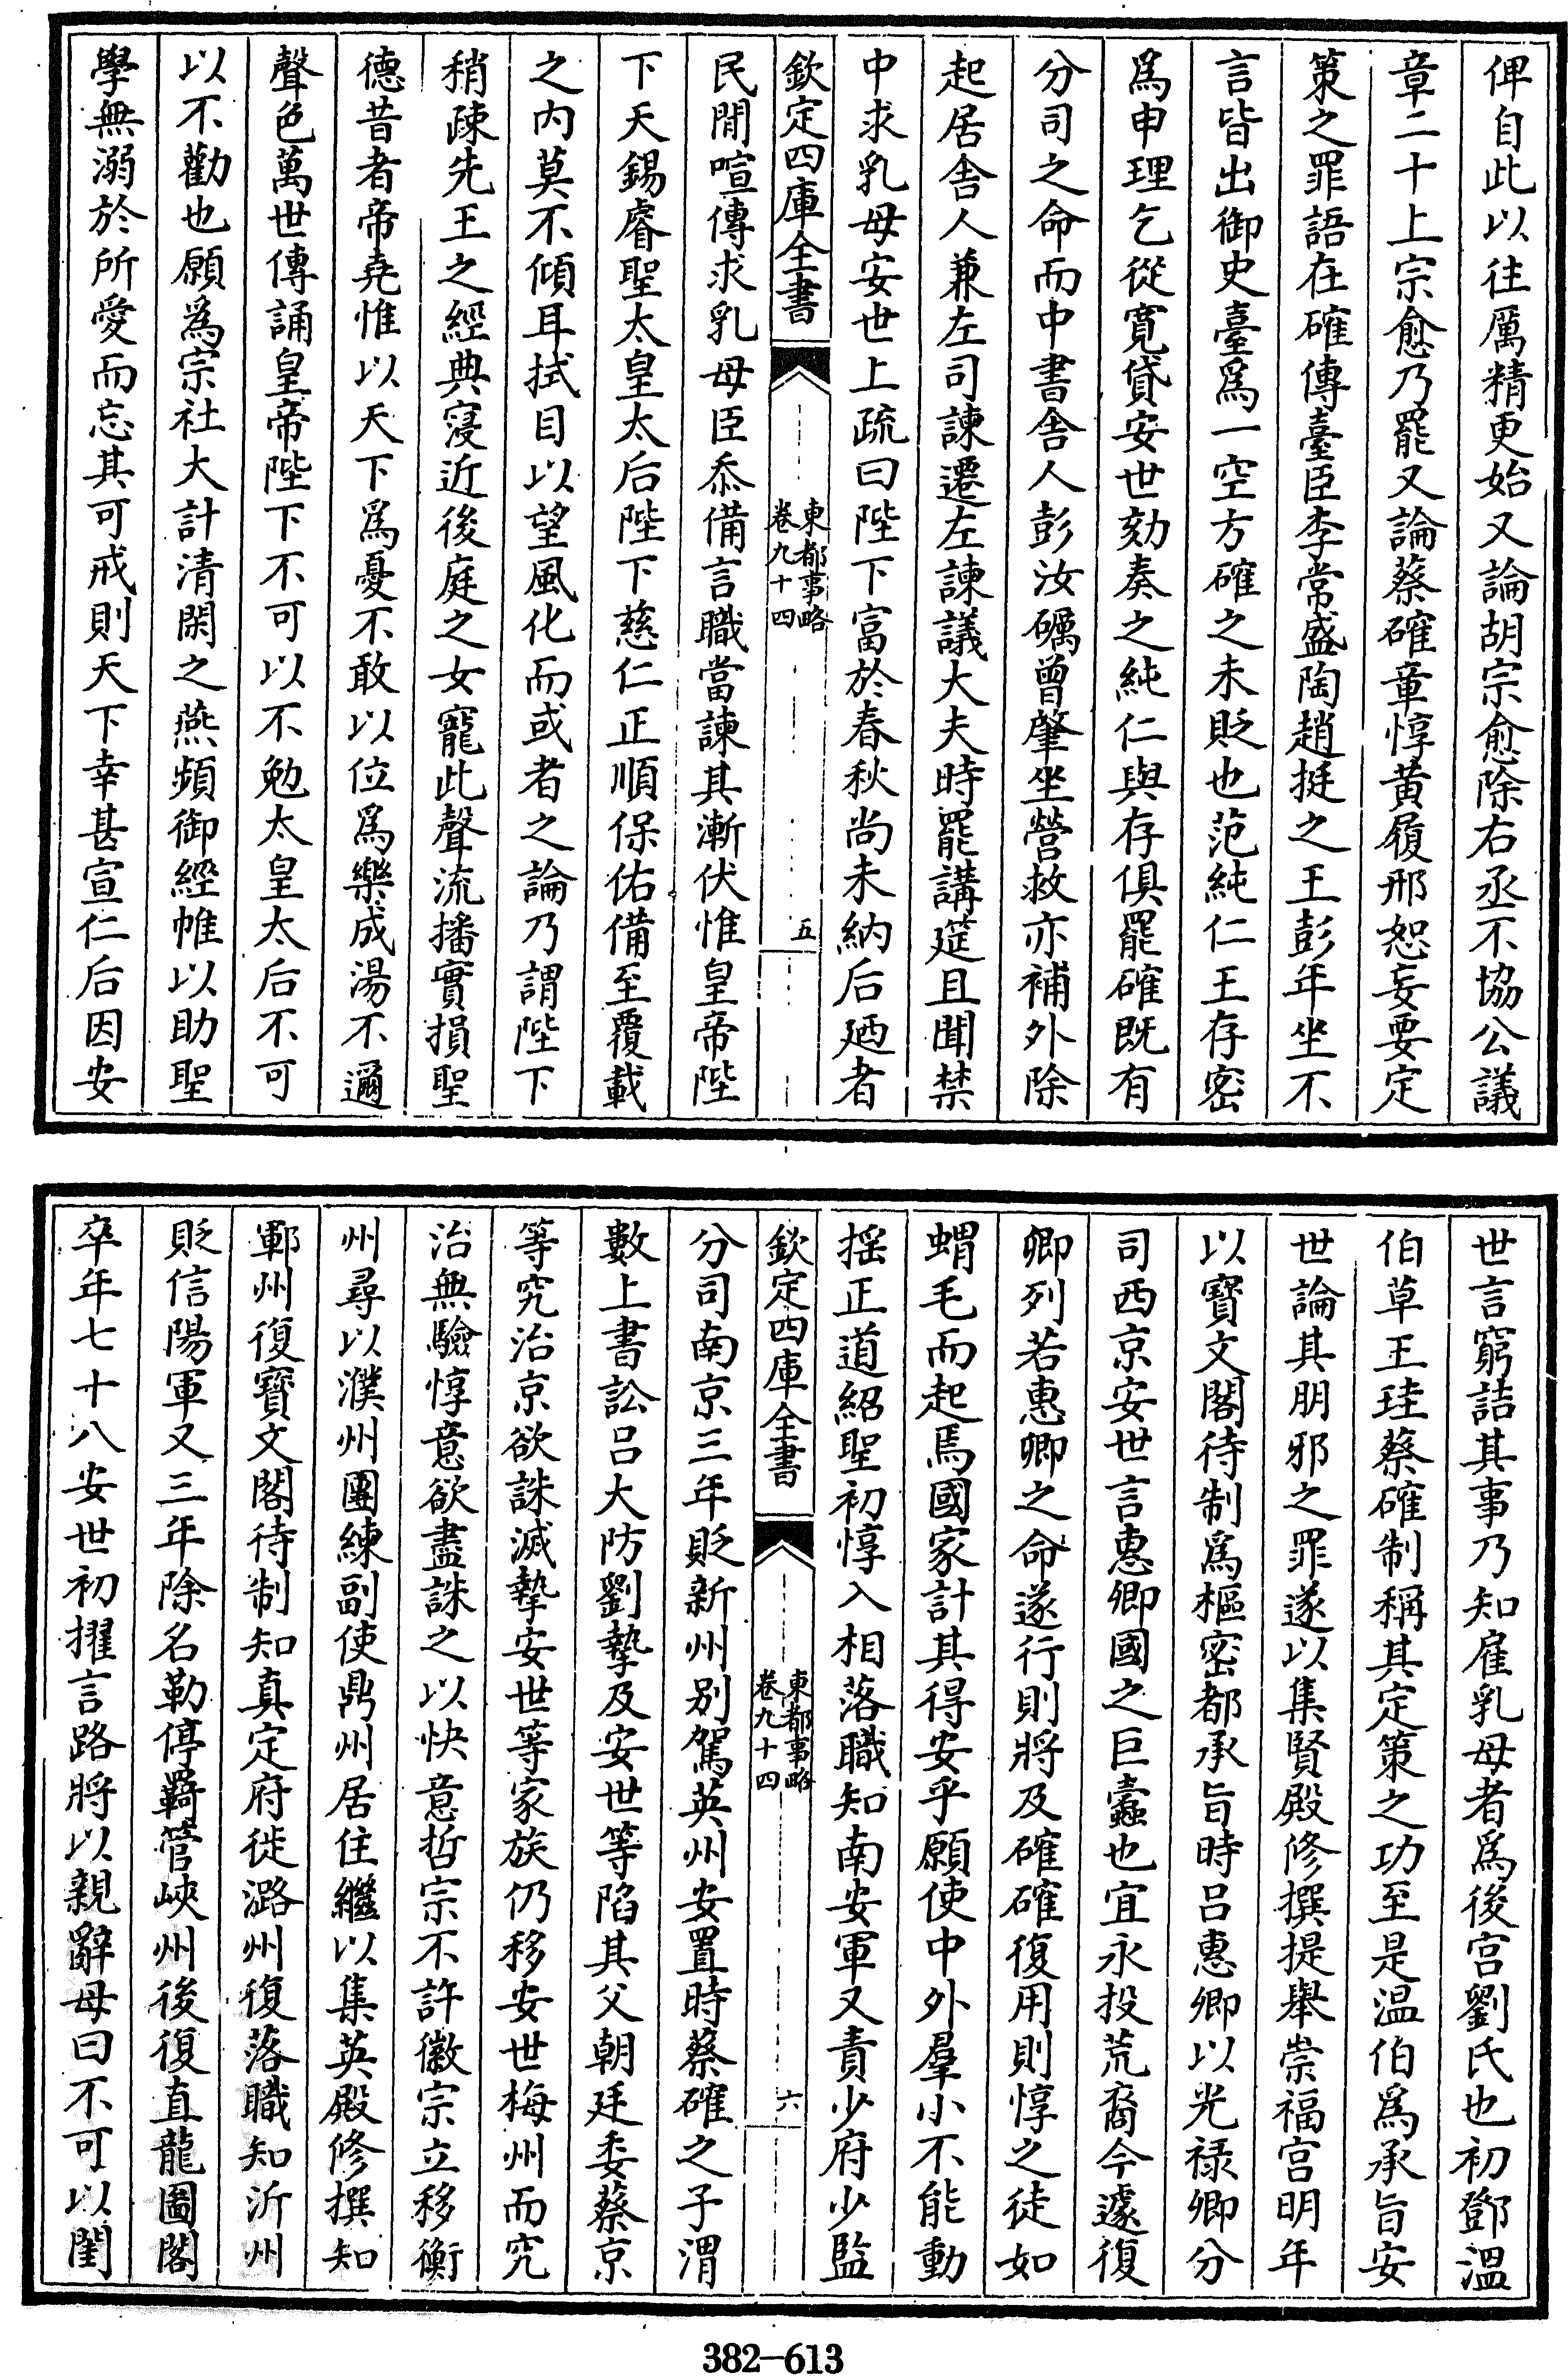 俾自此以往厲精更始又論胡宗愈除右丞不協公議
章二十上宗愈乃罷又論蔡確章惇黃履邢恕妄要定
策之罪語在確傳臺臣李常盛陶趙挺之王彭年坐不
言皆出御史臺爲一空方確之未貶也范純仁王存密
爲申理乞從寬貸安世劾奏之純仁與存俱罷確既有
分司之命而中書舍人彭汝礪曾肇坐營救亦補外除
起居舍人兼左司諫遷左諫議大夫時罷講筵且聞禁
中求乳母安世上疏曰陛下富於春秋尚未納后廼者
欽定四庫全書
東都事略
卷九十四
五
民閒喧傳求乳母臣忝備言職當諫其漸伏惟皇帝陛
下天錫睿聖太皇太后陛下慈仁正順保佑備至覆載
之内莫不傾耳拭目以望風化而或者之論乃謂陛下
稍疎先王之經典寖近後庭之女寵此聲流播實損聖
德昔者帝堯惟以天下爲憂不敢以位爲樂成湯不邇
聲色萬世傳誦皇帝陛下不可以不勉太皇太后不可
以不勸也願爲宗社大計清閑之燕頻御經帷以助聖
學無溺於所愛而忘其可戒則天下幸甚宣仁后因安
世言窮詰其事乃知雇乳母者爲後宮劉氏也初鄧溫
伯草王珪蔡確制稱其定策之功至是温伯爲承旨安
世論其朋邪之罪遂以集賢殿修撰提舉崇福宮明年
以寶文閣待制爲樞密都承旨時呂惠卿以光禄卿分
司西京安世言惠卿國之巨蠹也宜永投荒裔今遽復
卿列若惠卿之命遂行則將及確確復用則惇之徒如
蝟毛而起焉國家計其得安乎願使中外羣小不能動
搖正道紹聖初惇入相落職知南安軍又責少府少監
欽定四庫全書
東都事略
卷九十四
六
分司南京三年貶新州别駕英州安置時蔡確之子渭
數上書訟呂大防劉摯及安世等陷其父朝廷委蔡京
等究治京欲誅滅摯安世等家族仍移安世梅州而究
治無驗惇意欲盡誅之以快意哲宗不許徽宗立移衡
州尋以濮州團練副使鼎州居住繼以集英殿修撰知
鄆州復寶文閣待制知真定府徙潞州復落職知沂州
貶信陽軍又三年除名勒停羇管峽州後復直龍圖閣
卒年七十八安世初擢言路將以親辭母曰不可以閨
382—613